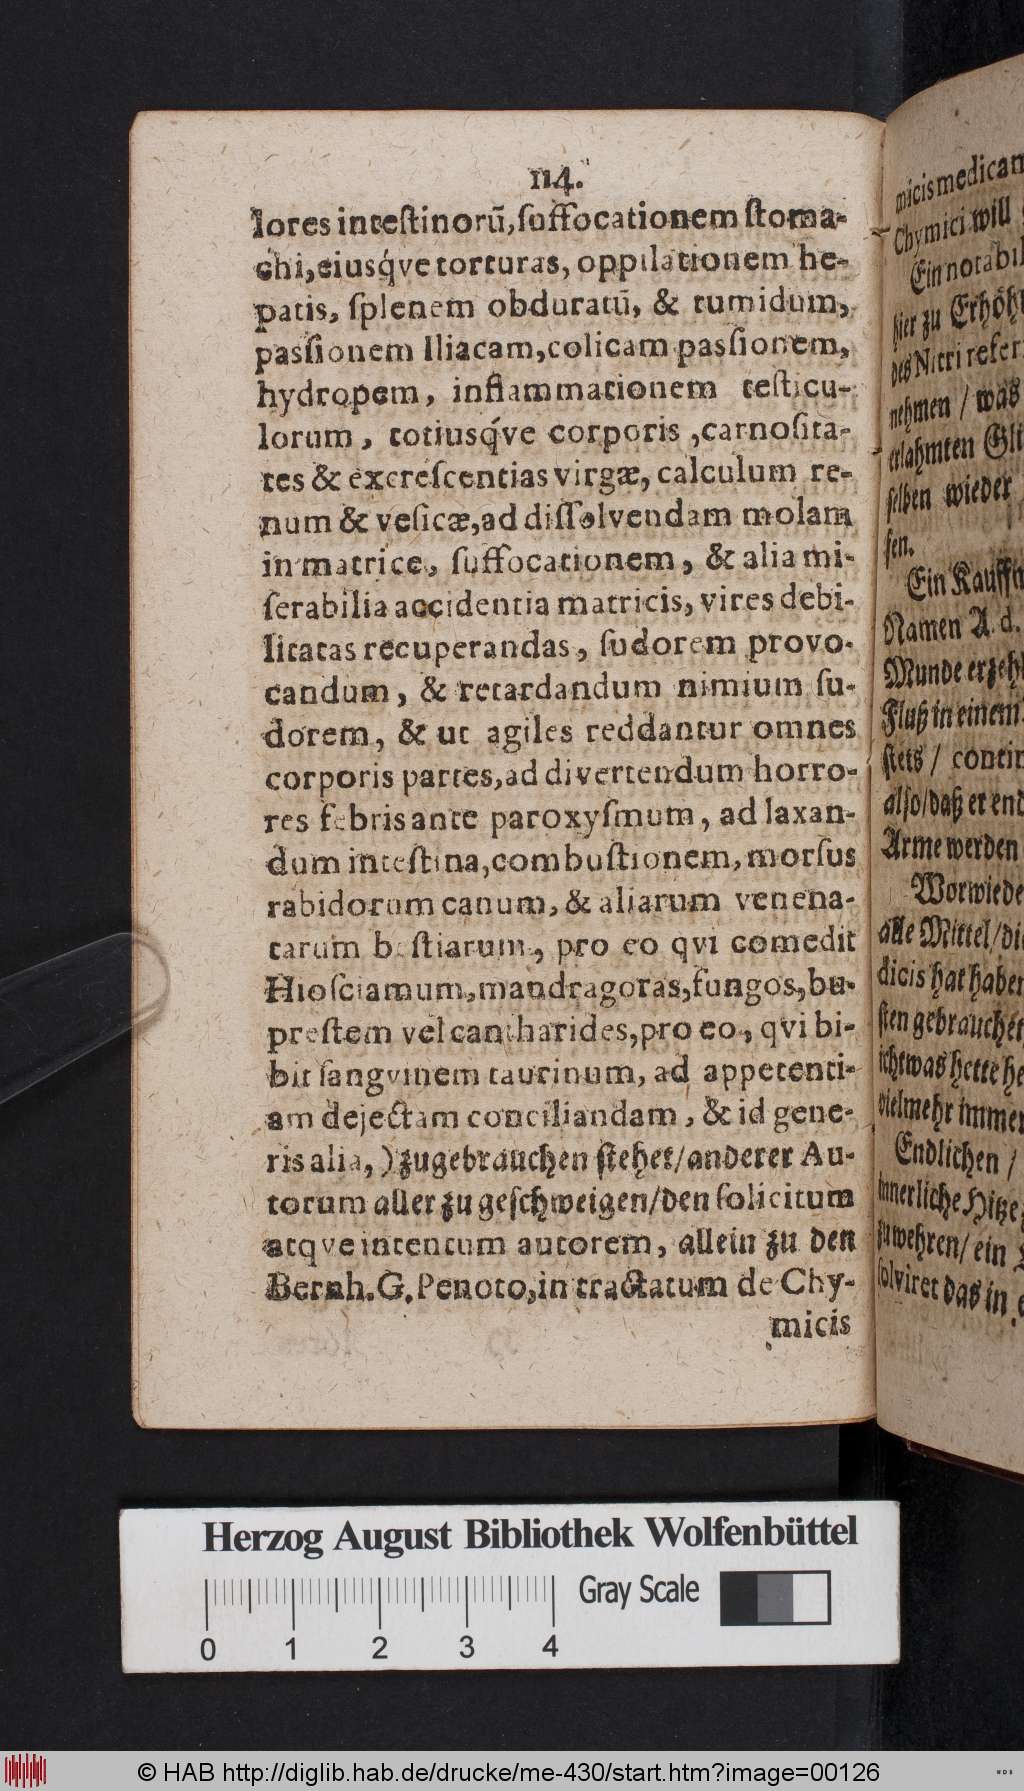 114.
lores inteſtinorū, ſuffocationem ſtoma-
chi, eiusq́ve torturas, oppilationem he-
patis, ſplenem obduratū, & tumidum,
paſſionem Iliacam, colicam paſſionem,
hydropem, inflammationem teſticu-
lorum, totiusq́ve corporis, carnoſita-
tes & excreſcentias virgæ, calculum re-
num & veſicæ, ad diſſolvendam molam
in matrice, ſuffocationem, & alia mi-
ſerabilia accidentia matricis, vires debi-
litatas recuperandas, ſudorem provo-
candum, & retardandum nimium ſu-
dorem, & ut agiles reddantur omnes
corporis partes, ad divertendum horro-
res febris ante paroxyſmum, ad laxan-
dum inteſtina, combuſtionem, morſus
rabidorum canum, & aliarum venena-
tarum beſtiarum, pro eo qvi comedit
Hioſciamum, mandragoras, fungos, bu-
preſtem vel cantharides, pro eo, qvi bi-
bit ſangvinem taurinum, ad appetenti-
am dejectam conciliandam, & id gene-
ris alia, ) zugebrauchen ſtehet/ anderer Au-
torum aller zu geſchweigen/ den ſolicitum
atqve intentum autorem, allein zu den
Bernh. G. Penoto, in tractatum de Chy-
micis
micis medicam
Chymici will
Ein notabil
hier zu Erhöh
des Nitri refer
nehmen / was
erlahmten Gli
ſelben wieder
ſen.
Ein Kauffm
Namen A. d.
Munde erzehl
Fluß in einem
ſtets / contin
alſo/ daß er end
Arme werden
Worwiede
alle Mittel/ die
dicis hat haben
ſten gebrauchet
ichtwas hette he
vielmehr immer
Endlichen /
innerliche Hitze
zu wehren/ ein
ſolviret das in
Herzog August Bibliothek Wolfenbüttel
Gray Scale
0 1 2 3 4
© HAB http://diglib.hab.de/drucke/me-430/start.htm?image=00126